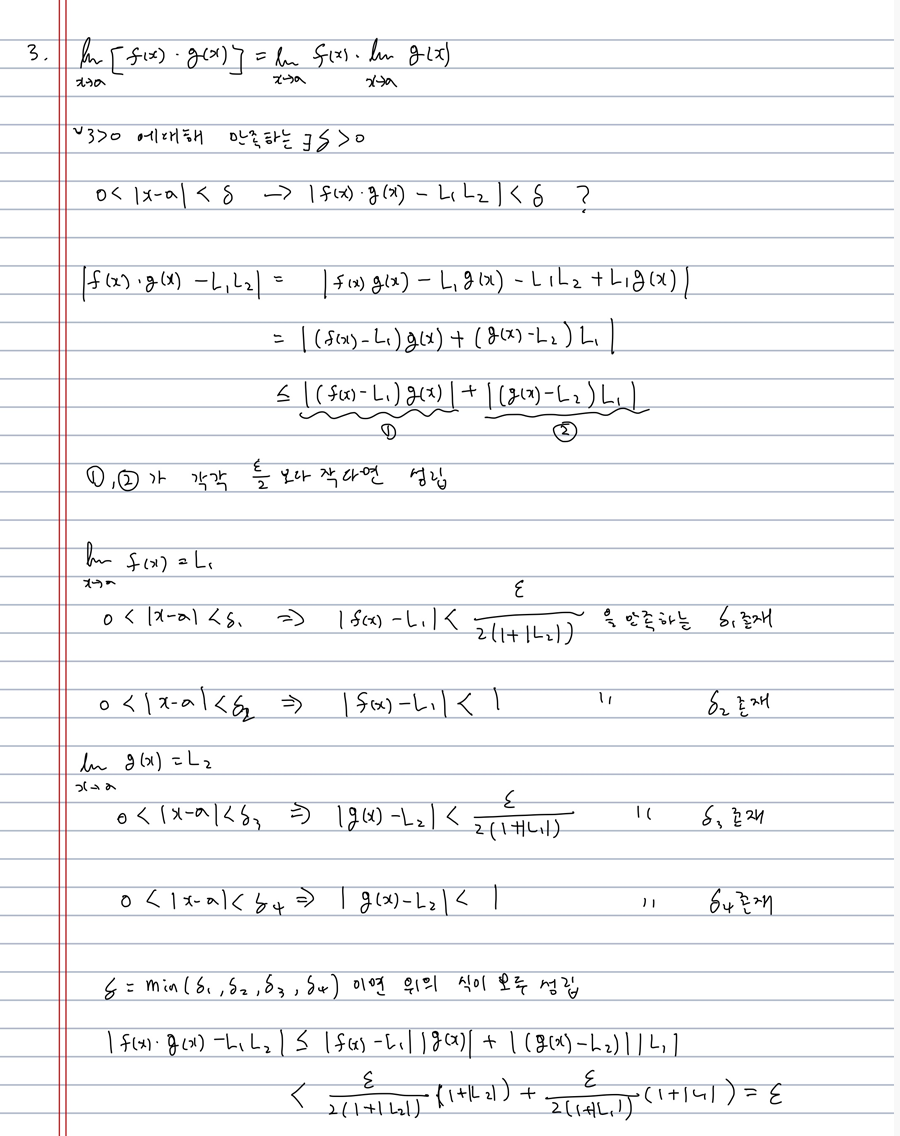 3. lim [f(x)·g(x)] = lim f(x)·lim g(x)
x→a x→a x→a
∀ε>0 에대해 만족하는 ∃δ>0
0<|x-a|<δ → |f(x)·g(x) - L₁L₂|<δ ?
|f(x)·g(x) - L₁L₂| = |f(x)g(x) - L₁g(x) - L₁L₂ + L₁g(x)|
= |(f(x)-L₁)g(x) + (g(x)-L₂)L₁|
≤ |(f(x)-L₁)g(x)| + |(g(x)-L₂)L₁|
① ②
①,② 가 각각 ε/2 보다 작다면 성립
lim f(x) = L₁
x→a
0<|x-a|<δ₁ ⇒ |f(x)-L₁| < ε/2(1+|L₂|) 을 만족하는 δ₁존재
0<|x-a|<δ₂ ⇒ |f(x)-L₁| < 1 〃 δ₂존재
lim g(x) = L₂
x→a
0<|x-a|<δ₃ ⇒ |g(x)-L₂| < ε/2(1+|L₁|) 〃 δ₃존재
0<|x-a|<δ₄ ⇒ |g(x)-L₂| < 1 〃 δ₄존재
δ = min(δ₁,δ₂,δ₃,δ₄) 이면 위의 식이 모두 성립
|f(x)·g(x) - L₁L₂| ≤ |f(x)-L₁||g(x)| + |(g(x)-L₂)||L₁|
< ε/2(1+|L₂|)·(1+|L₂|) + ε/2(1+|L₁|)·(1+|L₁|) = ε